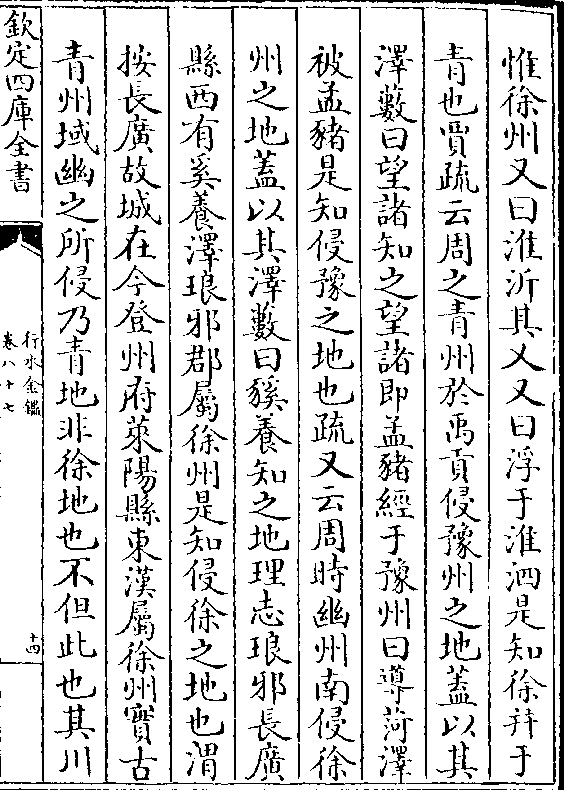 惟徐州又曰淮沂其乂又曰浮于淮泗是知徐并于
青也賈疏云周之青州於禹貢侵豫州之地蓋以其
澤藪曰望諸知之望諸即孟豬經于豫州曰導菏澤
被孟豬是知侵豫之地也疏又云周時幽州南侵徐
州之地蓋以其澤藪曰貕養知之地理志琅邪長廣
縣西有奚養澤琅邪郡屬徐州是知侵徐之地也渭
按長廣故城在今登州府萊陽縣東漢屬徐州實古
青州域幽之所侵乃青地非徐地也不但此也其川
欽定四庫全書
行水金鑑
卷八十七
十四